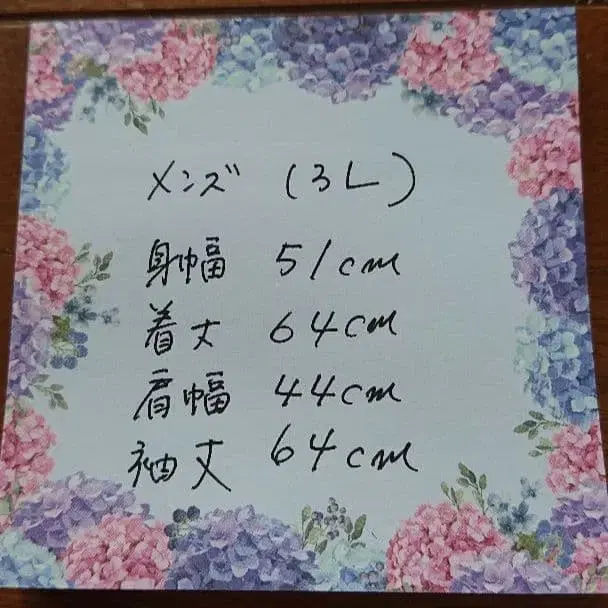 メンズ (3L)
身幅 51cm
着丈 64cm
肩幅 44cm
袖丈 64cm